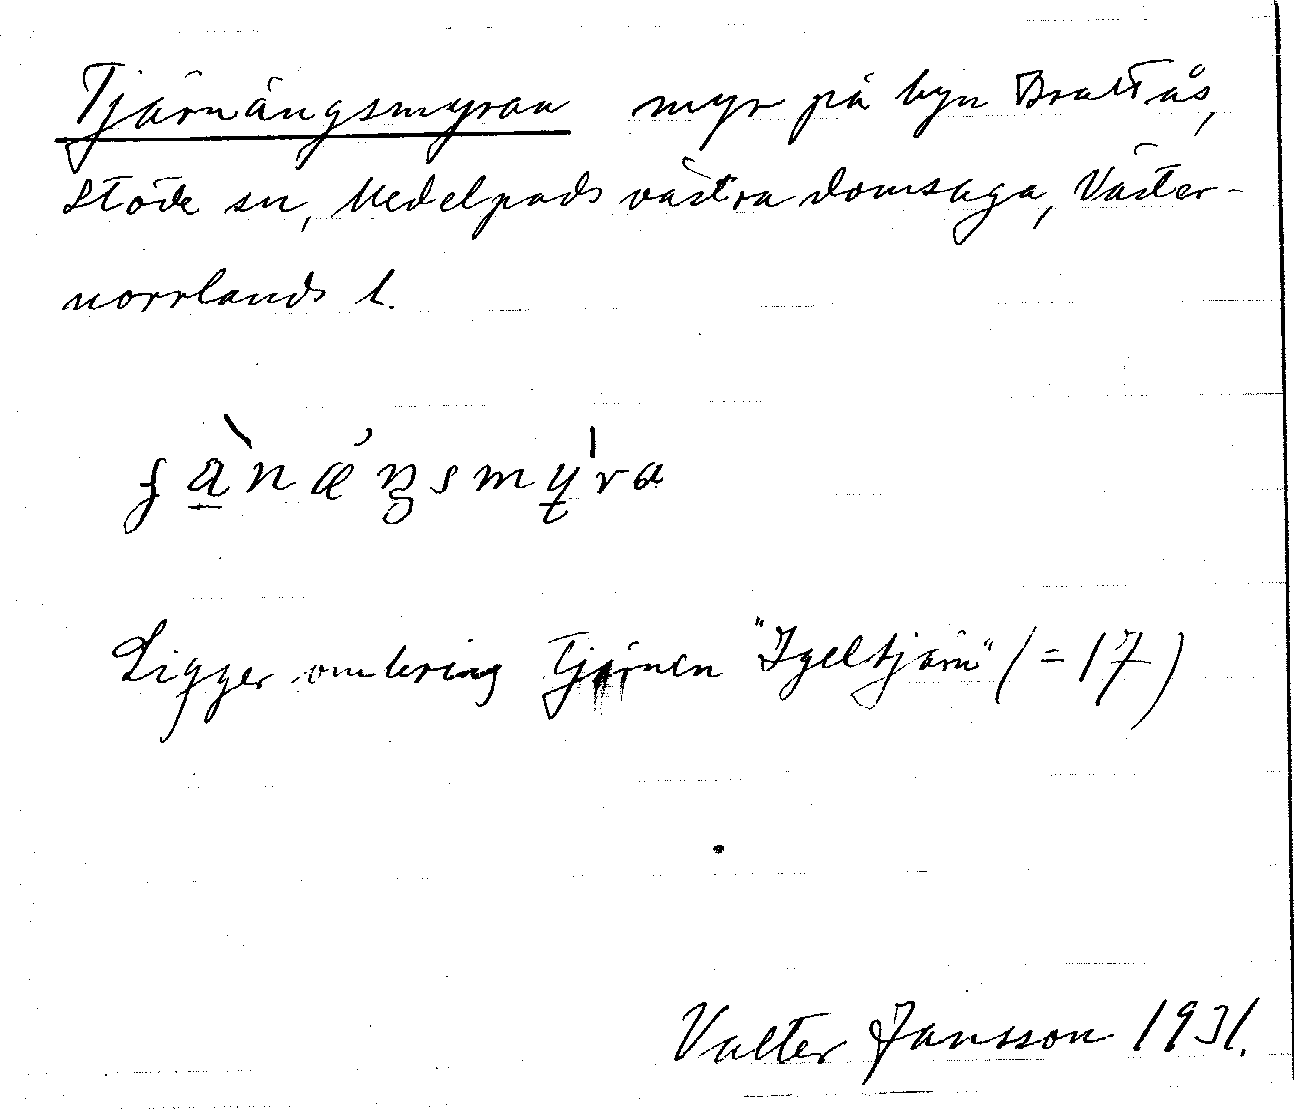 Tjärnängsmyran myr på byn Brattås,
Stöde sn, Medelpads västra domsaga, Väster-
norrlands l.
Ligger omkring Tjärnen "Igeltjärn" (= 17)
Valter Jansson 1931.